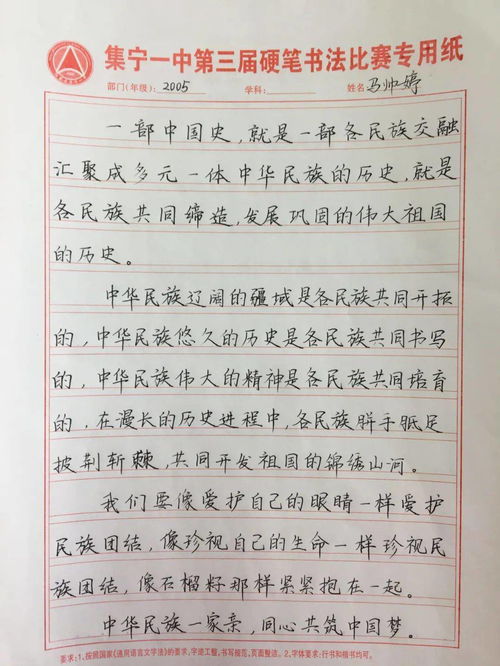 集宁一中第三届硬笔书法比赛专用纸
部门(年级): 2005 学科: 姓名 马帅婷
一部中国史,就是一部各民族交融
汇聚成多元一体中华民族的历史,就是
各民族共同缔造,发展巩固的伟大祖国
的历史。
中华民族辽阔的疆域是各民族共同开拓
的,中华民族悠久的历史是各民族共同书写
的,中华民族伟大的精神是各民族共同培育
的,在漫长的历史进程中,各民族胼手胝足
披荆斩棘,共同开发祖国的锦绣山河。
我们要像爱护自己的眼睛一样爱护
民族团结,像珍视自己的生命一样珍视民
族团结,像石榴籽那样紧紧抱在一起。
中华民族一家亲,同心共筑中国梦。
要求:1、按照国家《通用语言文字法》的要求,字迹工整,书写规范,页面整洁。2、字体要求:行书和楷书均可。